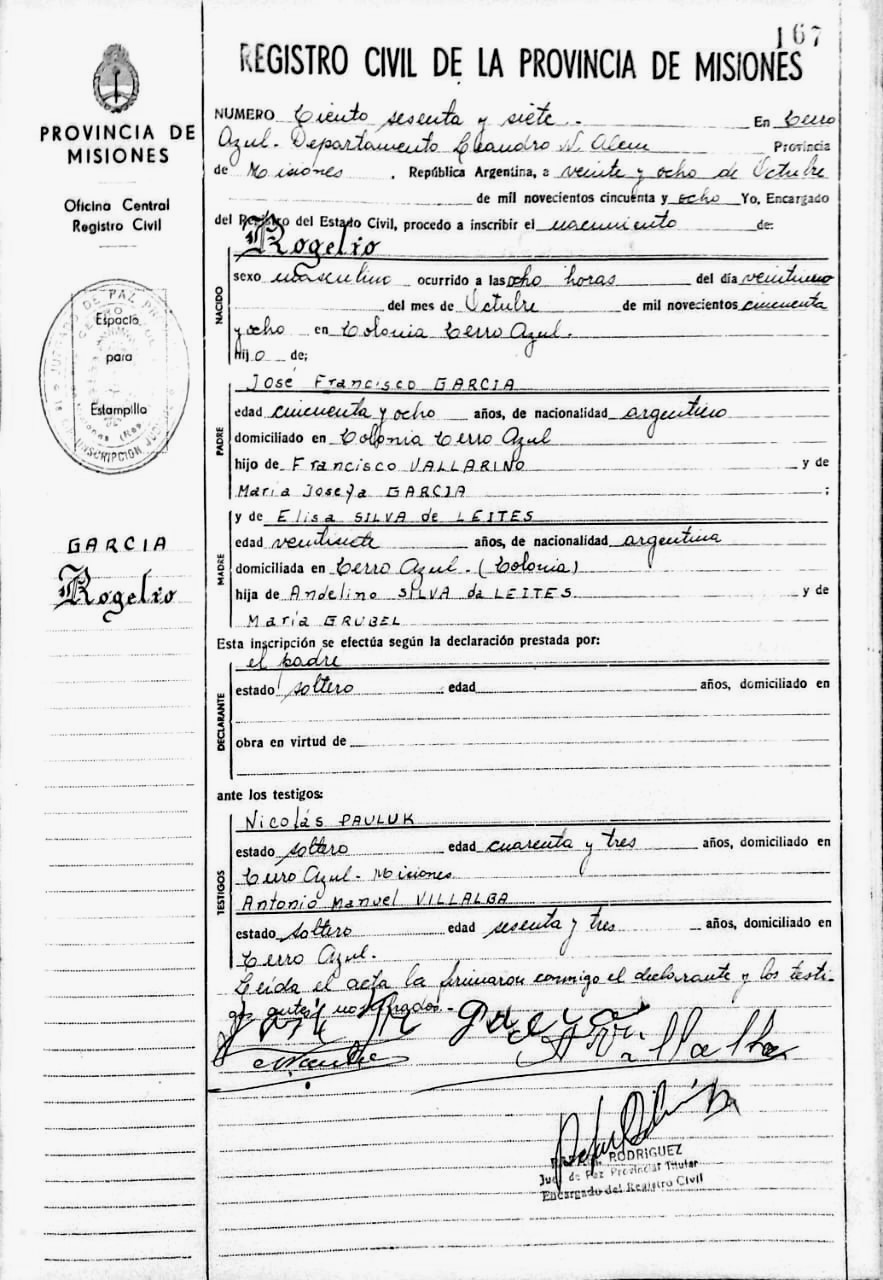 167
REGISTRO CIVIL DE LA PROVINCIA DE MISIONES
PROVINCIA DE
MISIONES
Oficina Central
Registro Civil
Espacio
para
Estampilla
GARCIA
Rogelio
NUMERO Ciento sesenta y siete.- En Cerro
Azul. Departamento Leandro N. Alem Provincia
de Misiones, República Argentina, a veinte y ocho de Octubre
de mil novecientos cincuenta y ocho Yo, Encargado
del Registro del Estado Civil, procedo a inscribir el nacimiento de:
Rogelio
NACIDO
sexo masculino ocurrido a las ocho horas del día veintiuno
del mes de Octubre de mil novecientos cincuenta
y ocho en Colonia Cerro Azul.
hijo de;
PADRE
José Francisco GARCIA
edad cincuenta y ocho años, de nacionalidad argentino
domiciliado en Colonia Cerro Azul
hijo de Francisco VALLARINO y de
María Josefa GARCIA;
MADRE
y de Elisa SILVA de LEITES
edad veintisiete años, de nacionalidad argentina
domiciliada en Cerro Azul. (Colonia)
hija de Andelino SILVA da LEITES y de
María GRUBEL
Esta inscripción se efectúa según la declaración prestada por:
el padre
DECLARANTE
estado soltero edad años, domiciliado en
obra en virtud de
ante los testigos:
TESTIGOS
Nicolás PAULUK
estado soltero edad cuarenta y tres años, domiciliado en
Cerro Azul - Misiones
Antonio Manuel VILLALBA
estado soltero edad sesenta y tres años, domiciliado en
Cerro Azul.
Leída el acta la firmaron conmigo el declarante y los testi-
gos antes nombrados.-
Villalba
RODRIGUEZ
Juez de Paz Provincial Titular
Encargado del Registro Civil